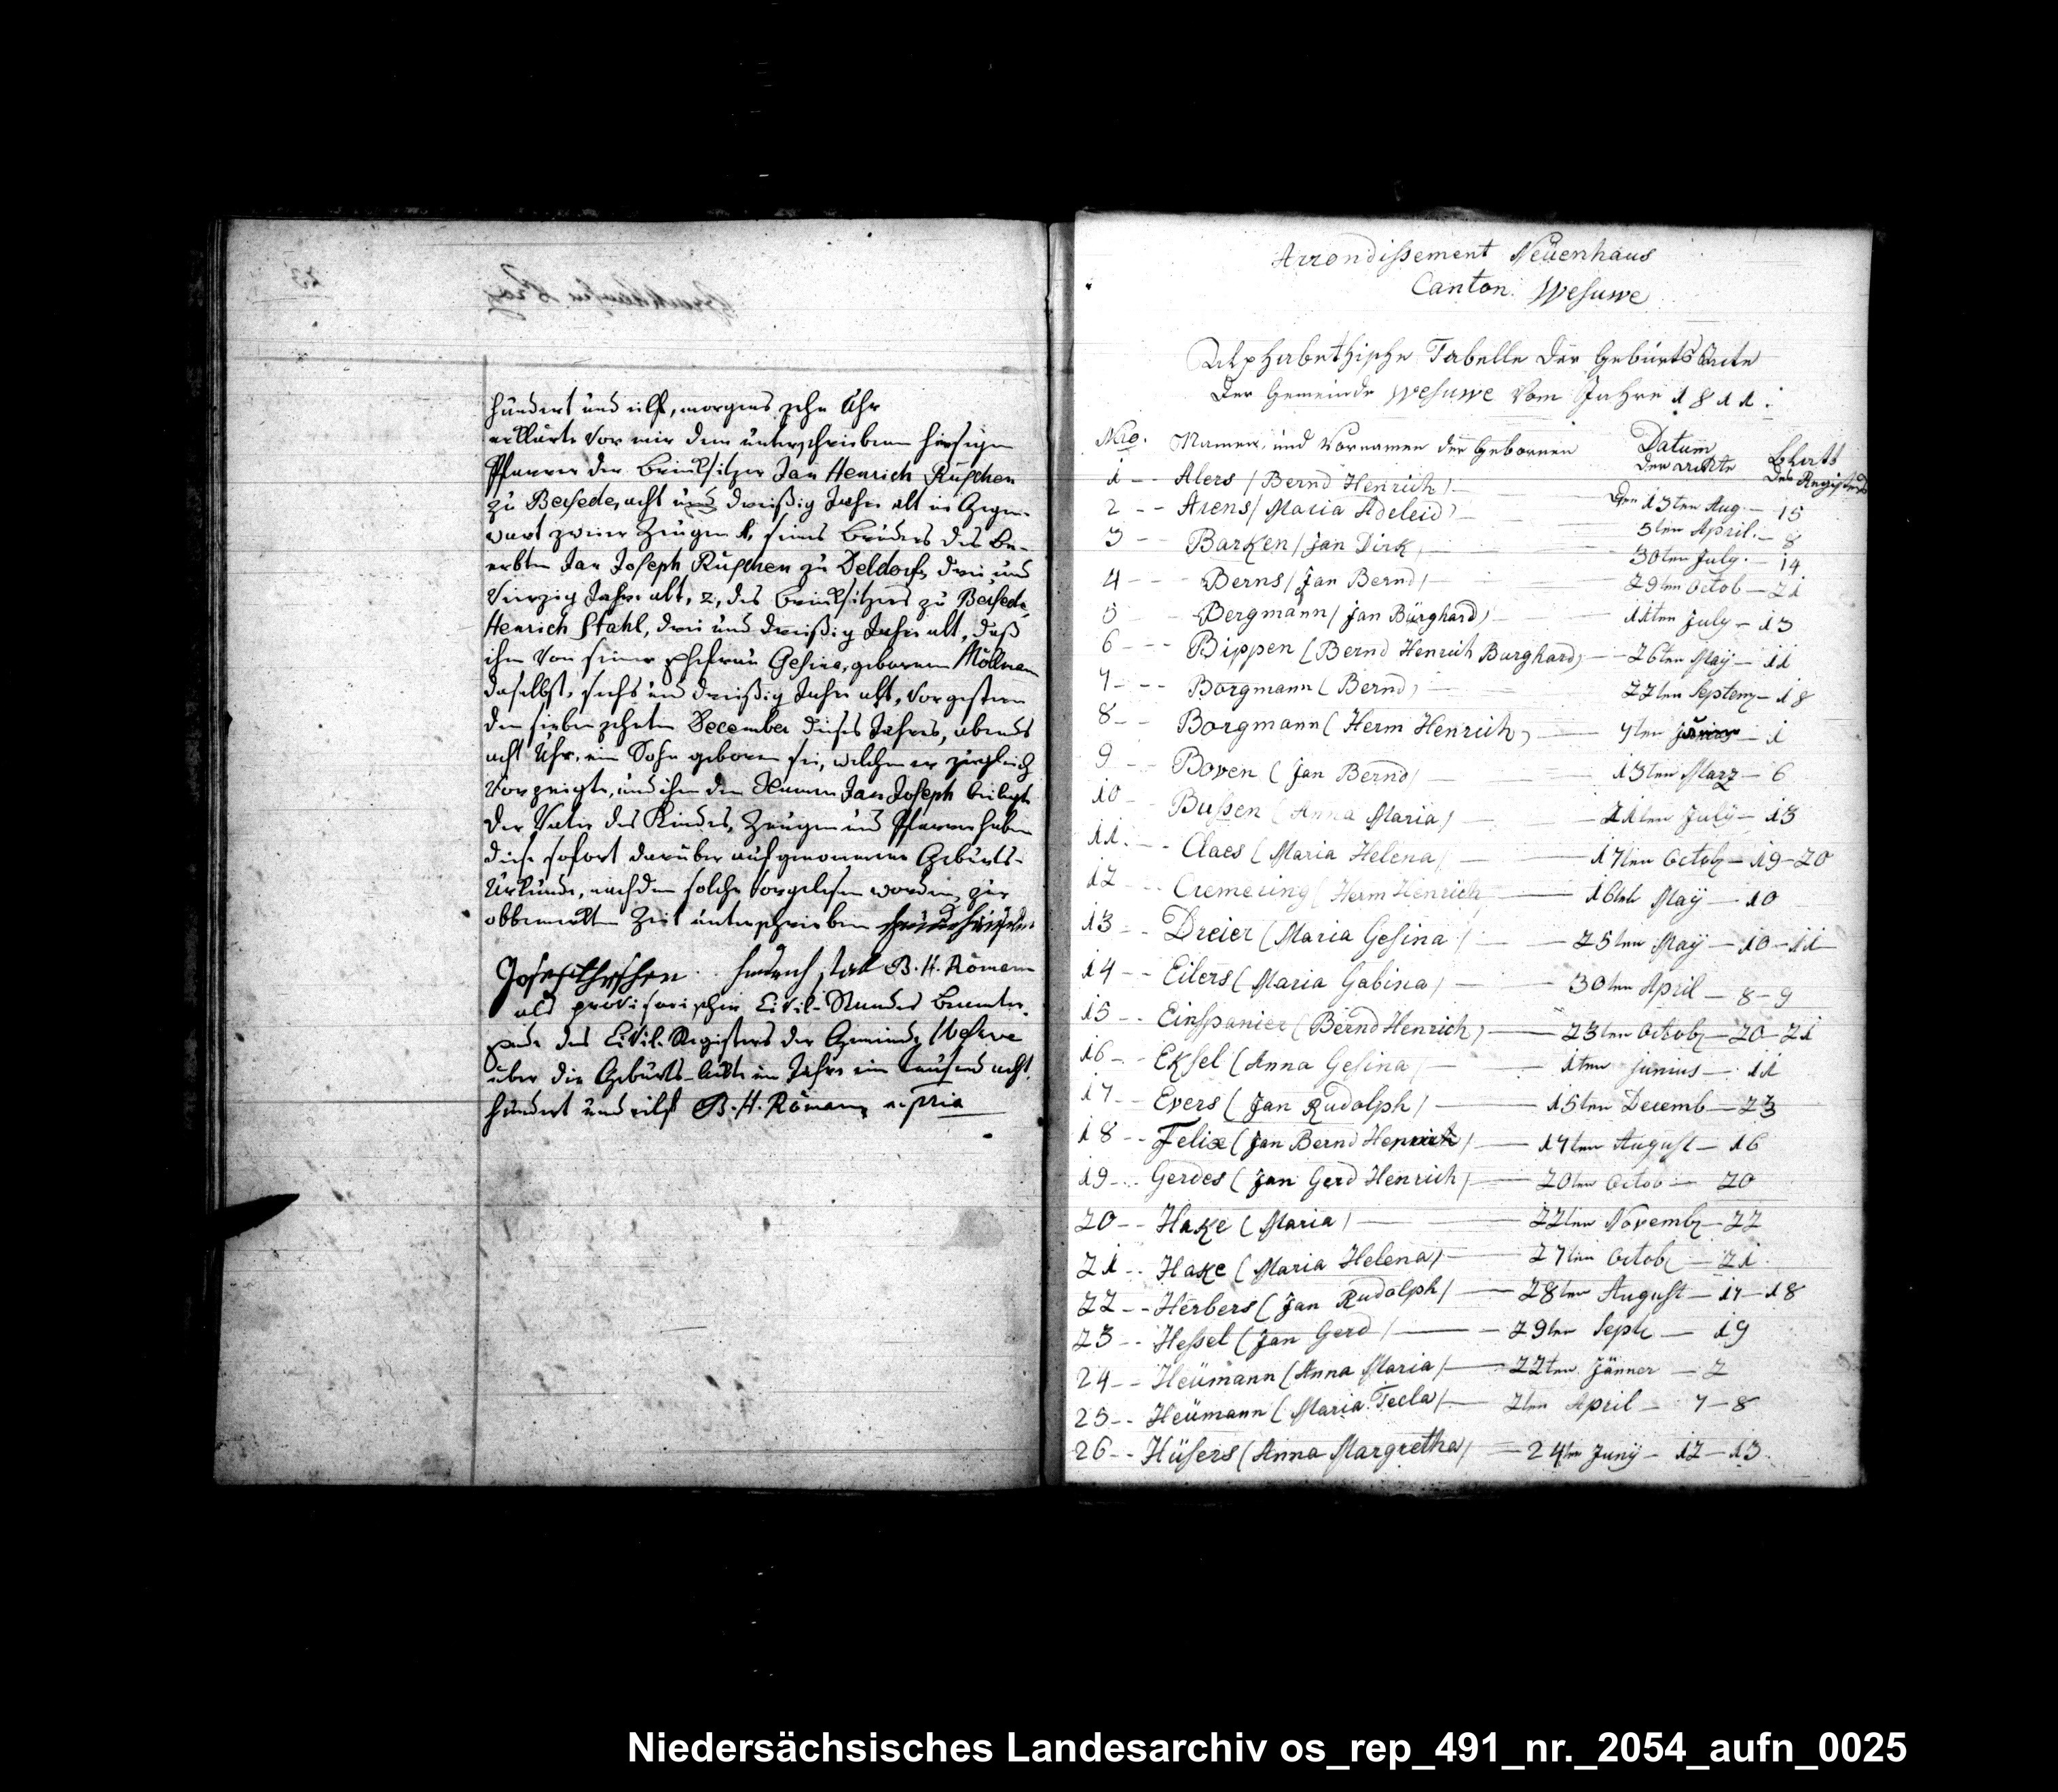 hundert und eilf, morgens zehn Uhr
erklärte vor mir dem unterschriebenen hiesigen
Pfarrer der Brinksitzer Jan Henrich Ruschen
zu Versede, acht und dreißig Jahr alt in Gegen-
wart zweier Zeugen 1, seines Bruders des Be-
erbten Jan Joseph Ruschen zu Deldorf, drei und
vierzig Jahr alt, 2, des Brinksitzers zu Versede
Henrich Stahl, drei und dreißig Jahr alt, daß
ihm von seiner Ehefrau Gesina, gebornen Möllman
daselbst, sechs und dreißig Jahr alt, vorgestern
den siebenzehnten December dieses Jahres, abends
acht Uhr, ein Sohn geboren sei, welchen er zugleich
vorzeigte, und ihm den Namen Jan Joseph beilegte
Der Vater des Kindes, Zeugen und Pfarrer haben
diese sofort darüber aufgenommene Geburts-
Urkunde, nachdem solche vorgelesen worden, zur
obbemerkten Zeit unterschrieben
Henrich Stall B. H. Römann
als provisorischer Civil-Standes Beamter.
Ende des Civil-Registers der Gemeinde Wesuwe
über die Geburts-Acte im Jahre ein tausend acht
hundert und eilf B. H. Römann mpria
Arrondissement Neuenhaus
Canton Wesuwe
Alphabethische Tabelle der Geburts Acte
der Gemeinde Wesuwe vom Jahre 1811.
Nro. Namen und Vornamen der Gebornen Datum der Ackte Blatt des Registers
1 -- Alers (Bernd Henrich) — Den 13ten Aug. — 15
2 -- Arens (Maria Adeleid) — 5ten April. — 8
3 -- Barken (Jan Dirk) — 30ten July. — 14
4 -- Berns (Jan Bernd) — 29ten Octob — 21
5 -- Bergmann (Jan Burghard) — 11ten July — 13
6 -- Bippen (Bernd Henrich Burghard) — 26ten May — 11
7 -- Borgmann (Bernd) — 22ten Septem — 18
8 -- Borgmann (Herm Henrich) — 7ten — 1
9 -- Boven (Jan Bernd) — 13ten Marz — 6
10 -- Bußen (Anna Maria) — 11ten July — 13
11. -- Claes (Maria Helena) — 17ten Octob — 19-20
12 -- Cremering (Herm Henrich) — 16ten May — 10
13 -- Dreier (Maria Gesina) — 25ten May — 10-11
14 -- Eilers (Maria Gabina) — 30ten April — 8-9
15 -- Einspanier (Bernd Henrich) — 23ten Octob — 20-21
16 -- Eksel (Anna Gesina) — 1ten junius — 11
17 -- Evers (Jan Rudolph) — 15ten Decemb — 23
18 -- Felix (Jan Bernd Henrich) — 17ten August — 16
19 -- Gerdes (Jan Gerd Henrich) — 20ten Octob — 20
20 -- Hake (Maria) — 22ten Novemb — 22
21 -- Hake (Maria Helena) — 27ten Octob — 21.
22 -- Herbers (Jan Rudolph) — 28ten August — 17-18
23 -- Heßel (Jan Gerd) — 29ten Sept — 19
24 -- Heümann (Anna Maria) — 22ten Jänner — 2
25 -- Heümann (Maria Tecla) — 2ten April — 7-8
26 -- Hüsers (Anna Margretha) — 24ten Juny — 12-13.
Niedersächsisches Landesarchiv os_rep_491_nr._2054_aufn_0025